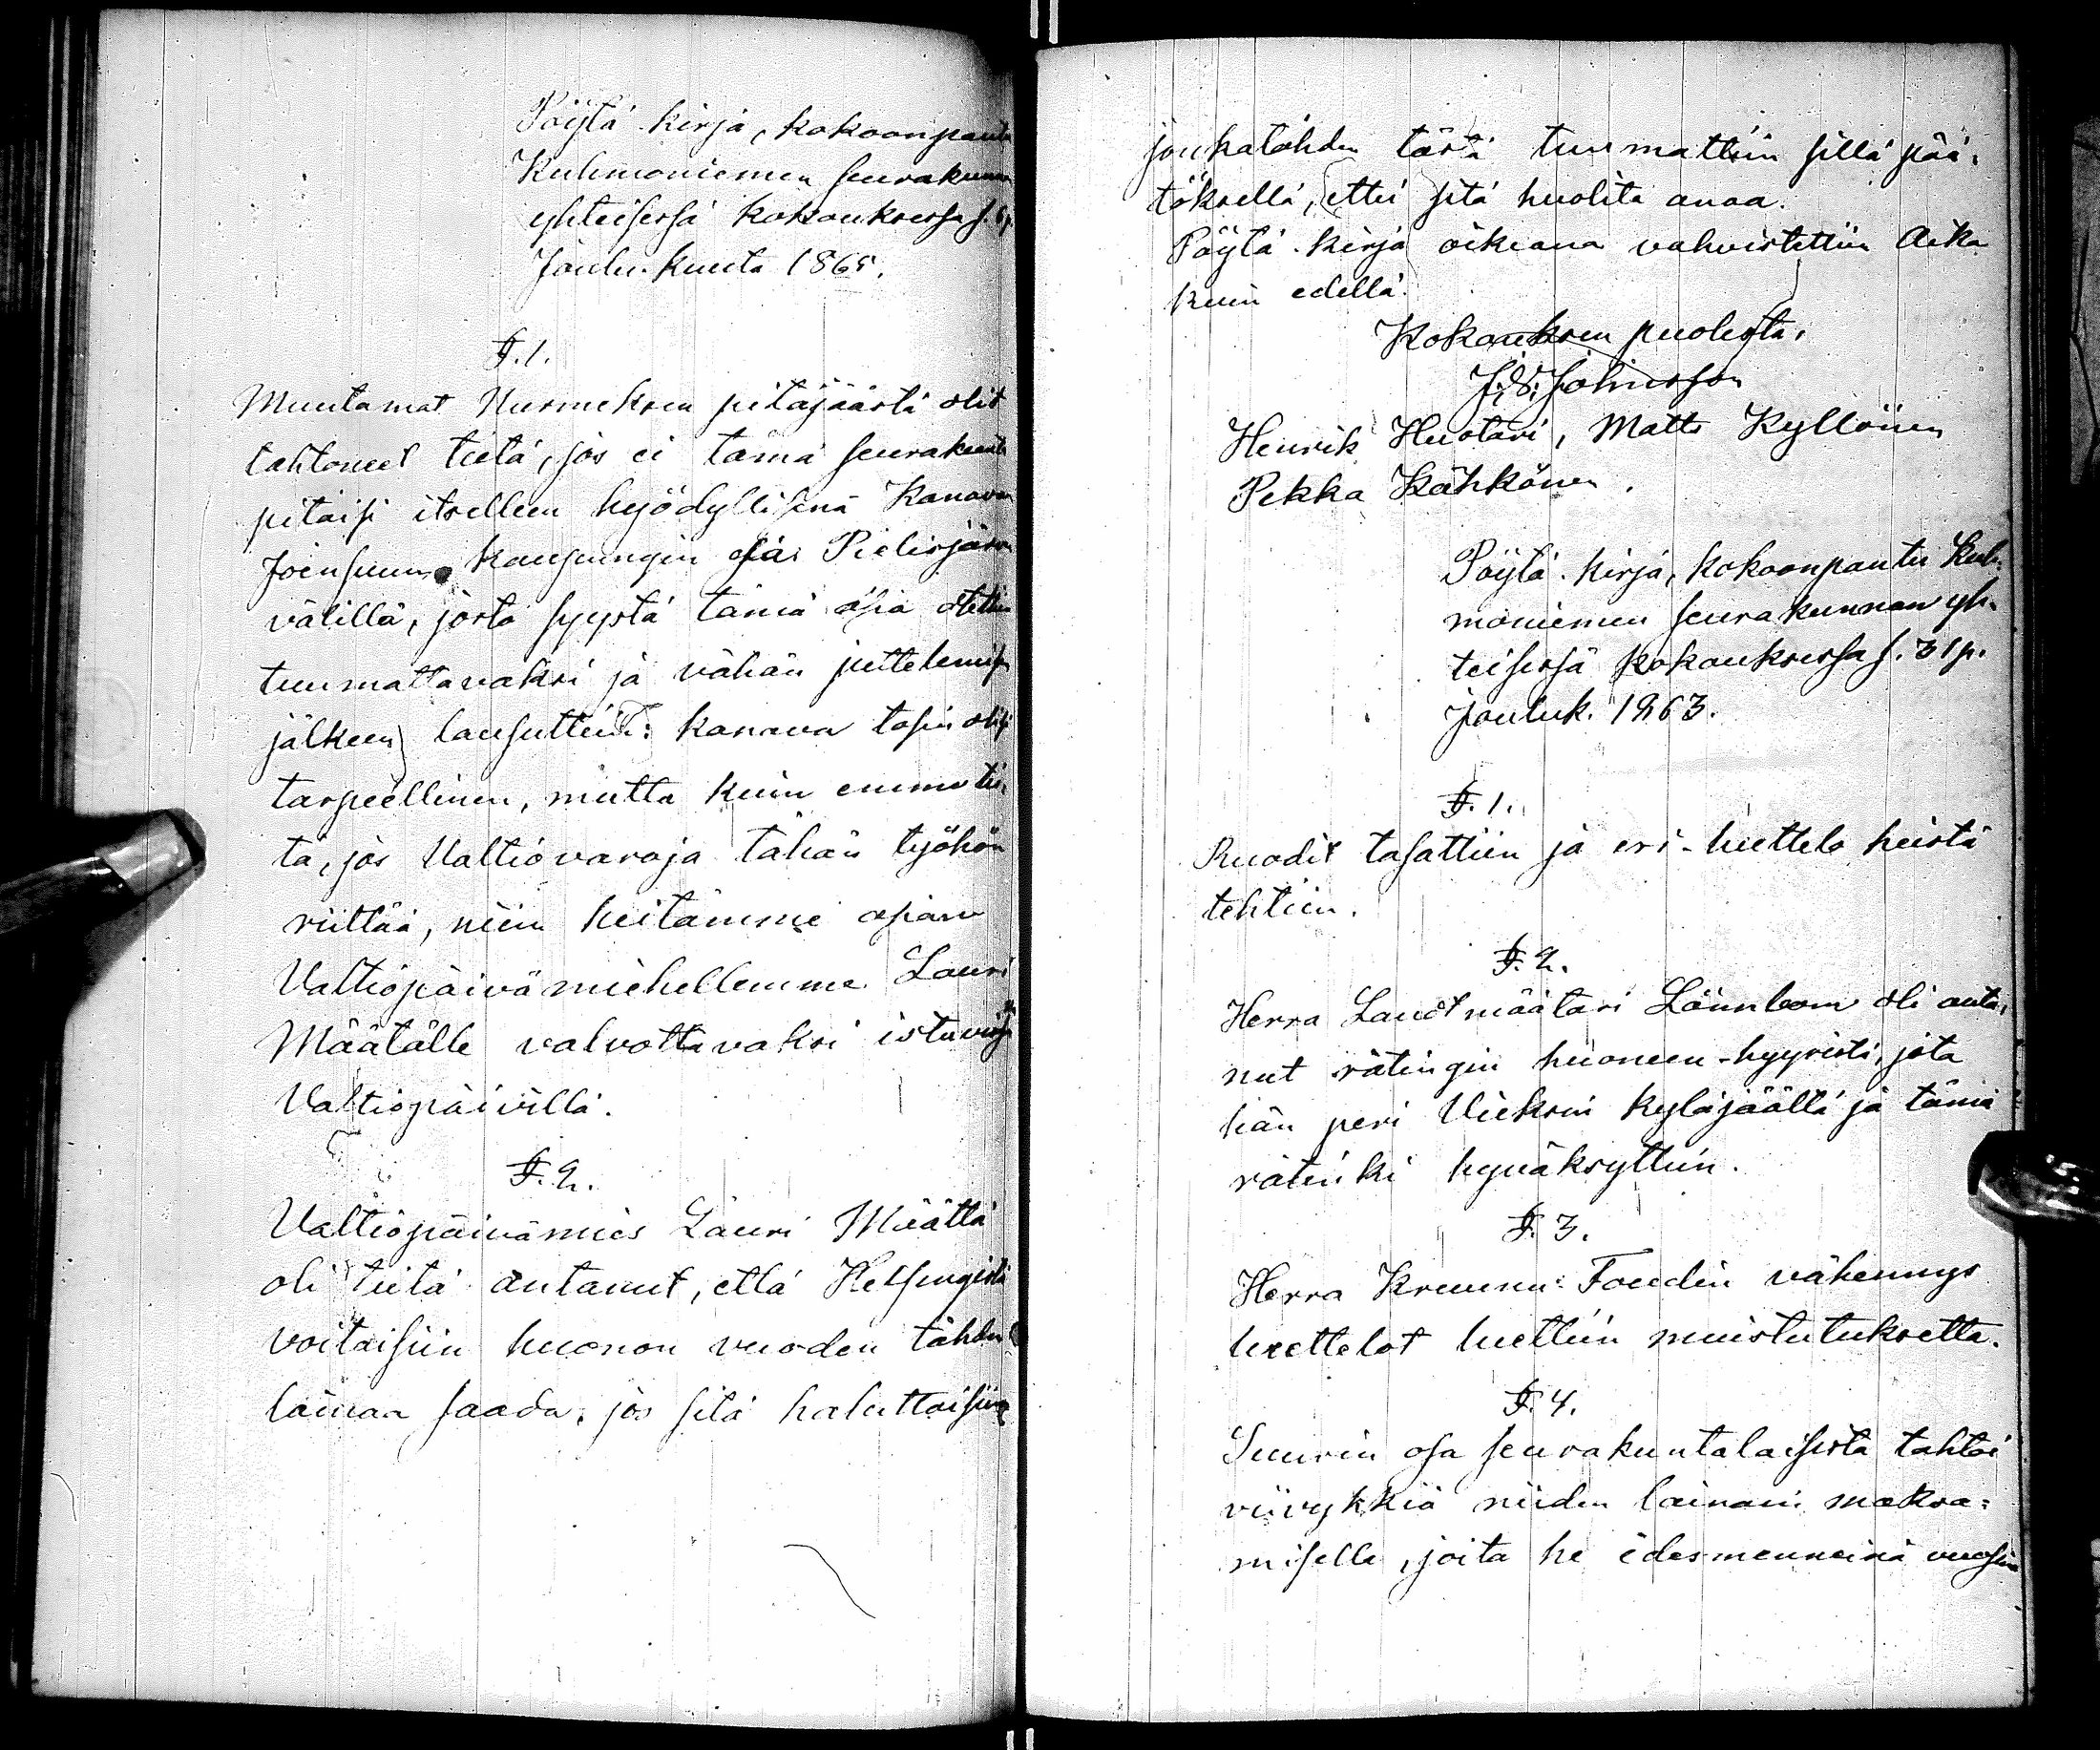 Pöytä-kirja, kokoonpantu
Kuhmoniemen seurakunnan
yhteisessä kokouksessa s. 6 p.
Joulu-kuuta 1865.
§. 1.
Muutamat Nurmeksen pitäjäästä olit
tahtoneet tietä, jos ei tämä seurakunta
pitäisi itselleen hyödyllisenä Kanavan
Joensuun kaupungin ja Pielisjärven
välillä, josta syystä tämä asia otettiin
tuumattavaksi ja vähän juttelemisen
jälkeen lausuttiin: kanava tosin olisi
tarpeellinen, mutta kuin emme tii-
tä, jos Valtiovaroja tähän työhön
riittää, niin heitämme asian
Valtiopäivämiehellemme Lauri
Määtälle valvottavaksi istuvilla
Valtiopäivillä.
§. 2.
Valtiopäivämies Lauri Määttä
oli tietä antanut, että Helsingistä
voitaisiin huonon vuoden tähden
lainaa saada, jos sitä haluttaisiin
jonkatähden tästä tuumattiin sillä pää-
töksellä, ettei sitä huolita anoa.
Pöytä-kirja oikeana vahvistettiin Aika
kuin edellä.
Kokouksen puolesta,
J. F. Johnsson
Henrik Huotari, Matts Kyllönen
Pekka Kähkönen.
Pöytä-kirja, kokoonpantu Kuh-
moniemen seurakunnan yh-
teisessä kokouksessa s. 31 p.
Jouluk. 1863.
§. 1.
Ruodit tasattiin ja eri-luettelo heistä
tehtiin.
§. 2.
Herra Landtmäätari Lönnbom oli anta-
nut rätingin huoneen-hyyristä, jota
hän peri Vieksin kyläjäältä ja tämä
rätinki hyväksyttiin.
§. 3.
Herra Kruunu-Foudin vähennys
luettelot luettiin muistutuksetta.
§. 4.
Suurin osa seurakuntalaisista tahtoi
viivykkiä niiden lainain maksa-
miselle, joita he edesmenneinä vuosina